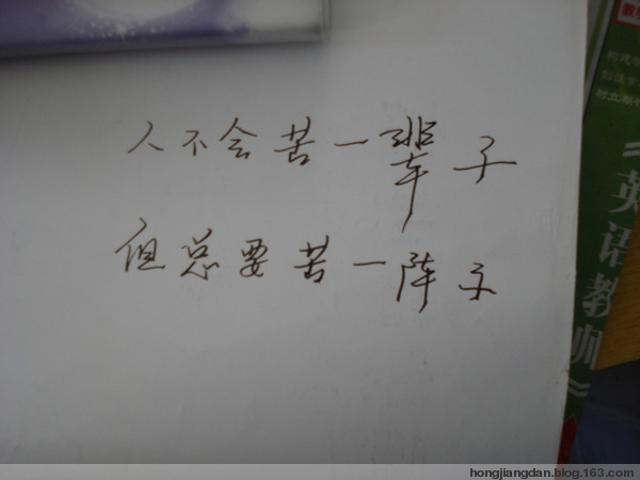 人不会苦一辈子
但总要苦一阵子
英语教师
hongjiangdan.blog.163.com